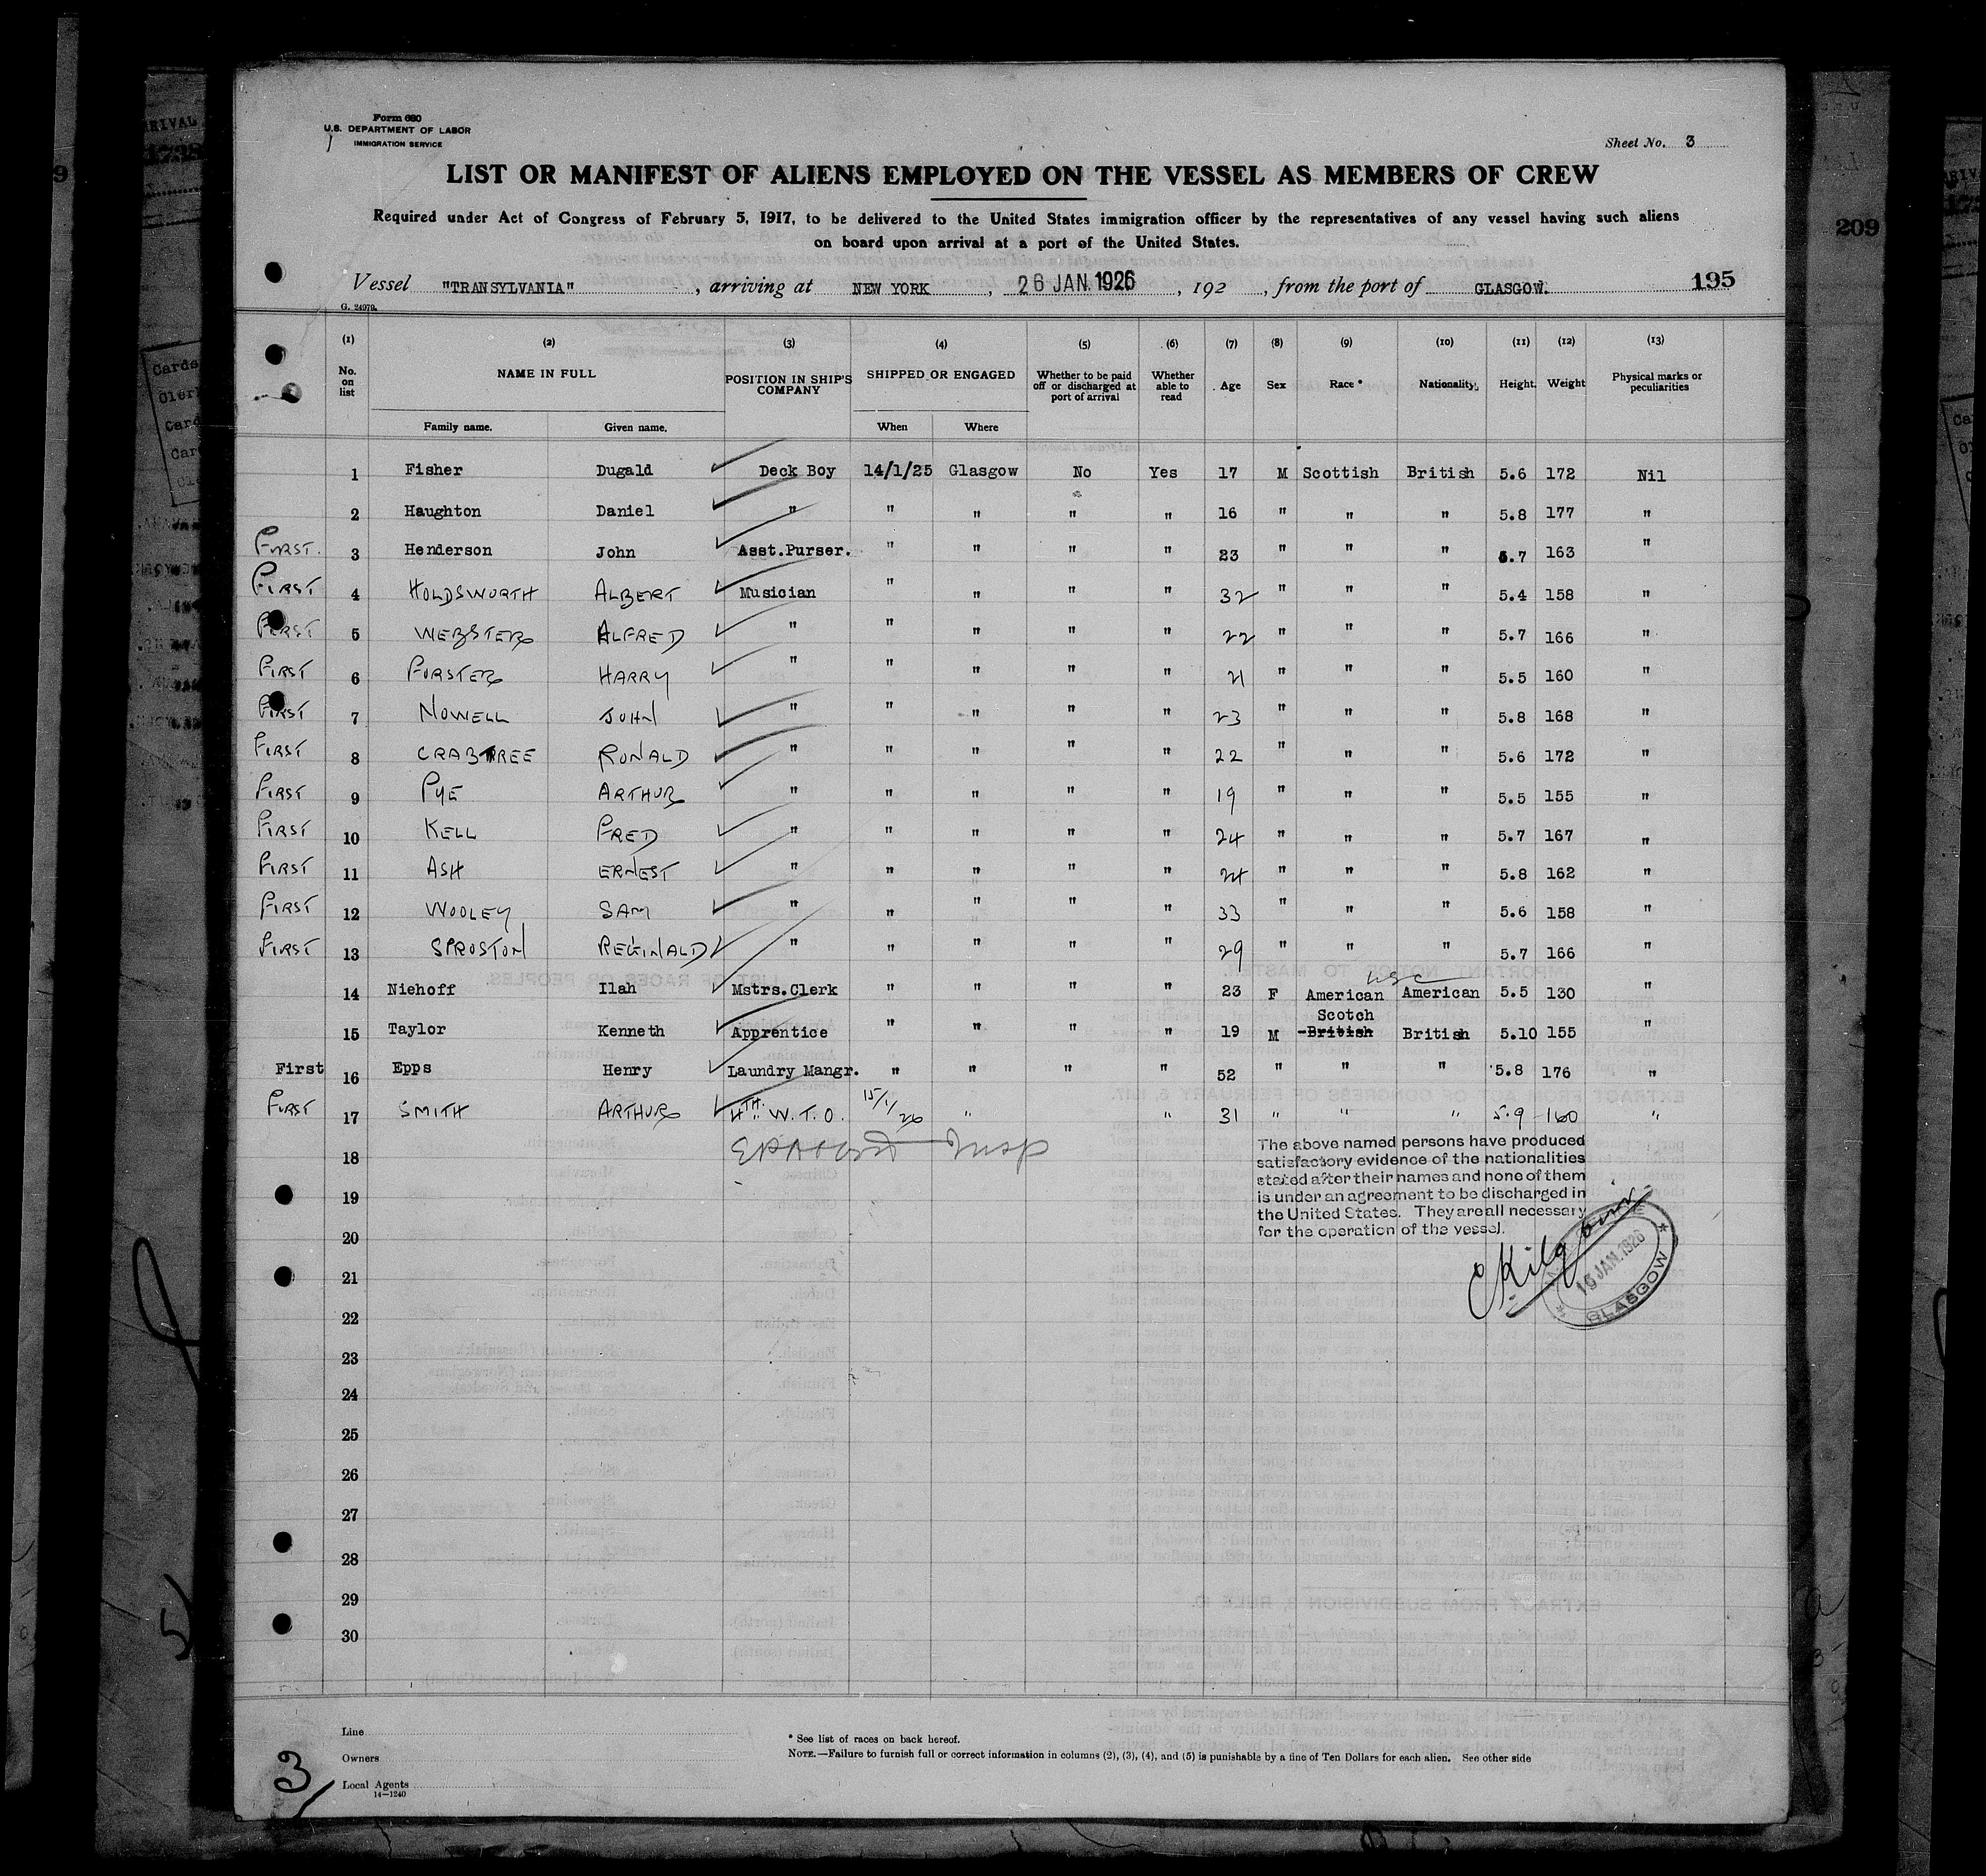 Form 680
U.S. DEPARTMENT OF LABOR
IMMIGRATION SERVICE
Sheet No. 3
LIST OR MANIFEST OF ALIENS EMPLOYED ON THE VESSEL AS MEMBERS OF CREW
Required under Act of Congress of February 5, 1917, to be delivered to the United States immigration officer by the representatives of any vessel having such aliens
on board upon arrival at a port of the United States.
Vessel "TRANSYLVANIA", arriving at NEW YORK, 26 JAN. 1926, 192 , from the port of GLASGOW. 195
G. 24978.
(1) (2) (3) (4) (5) (6) (7) (8) (9) (10) (11) (12) (13)
No. on list NAME IN FULL POSITION IN SHIP'S COMPANY SHIPPED OR ENGAGED Whether to be paid off or discharged at port of arrival Whether able to read Age Sex Race* Nationality. Height. Weight Physical marks or peculiarities
Family name. Given name. When Where
1 Fisher Dugald Deck Boy 14/1/25 Glasgow No Yes 17 M Scottish British 5.6 172 Nil
2 Haughton Daniel " " " " " 16 " " " 5.8 177 "
FIRST. 3 Henderson John Asst.Purser. " " " " 23 " " " 5.7 163 "
FIRST 4 HOLDSWORTH ALBERT Musician " " " " 32 " " " 5.4 158 "
FIRST 5 WEBSTER ALFRED " " " " " 22 " " " 5.7 166 "
FIRST 6 FORSTER HARRY " " " " " 21 " " " 5.5 160 "
FIRST 7 NOWELL JOHN " " " " " 23 " " " 5.8 168 "
FIRST 8 CRABTREE RONALD " " " " " 22 " " " 5.6 172 "
FIRST 9 PYE ARTHUR " " " " " 19 " " " 5.5 155 "
FIRST 10 KELL FRED " " " " " 24 " " " 5.7 167 "
FIRST 11 ASH ERNEST " " " " " 24 " " " 5.8 162 "
FIRST 12 WOOLEY SAM " " " " " 33 " " " 5.6 158 "
FIRST 13 SPROSTON REGINALD " " " " " 29 " " " 5.7 166 "
USC
14 Niehoff Ilah Mstrs.Clerk " " " " 23 F American American 5.5 130 "
Scotch
15 Taylor Kenneth Apprentice " " " " 19 M British British 5.10 155 "
First 16 Epps Henry Laundry Mangr. " " " " 52 " " " 5.8 176 "
FIRST 17 SMITH ARTHUR 4TH. W.T.O. 15/1/26 " " 31 " " " 5.9 160 "
18
19
20
21
22
23
24
25
26
27
28
29
30
Insp
The above named persons have produced
satisfactory evidence of the nationalities
stated after their names and none of them
is under an agreement to be discharged in
the United States. They are all necessary
for the operation of the vessel.
19 JAN. 1926
GLASGOW
Line
Owners
Local Agents
14—1240
* See list of races on back hereof.
NOTE.—Failure to furnish full or correct information in columns (2), (3), (4), and (5) is punishable by a fine of Ten Dollars for each alien. See other side
3
209